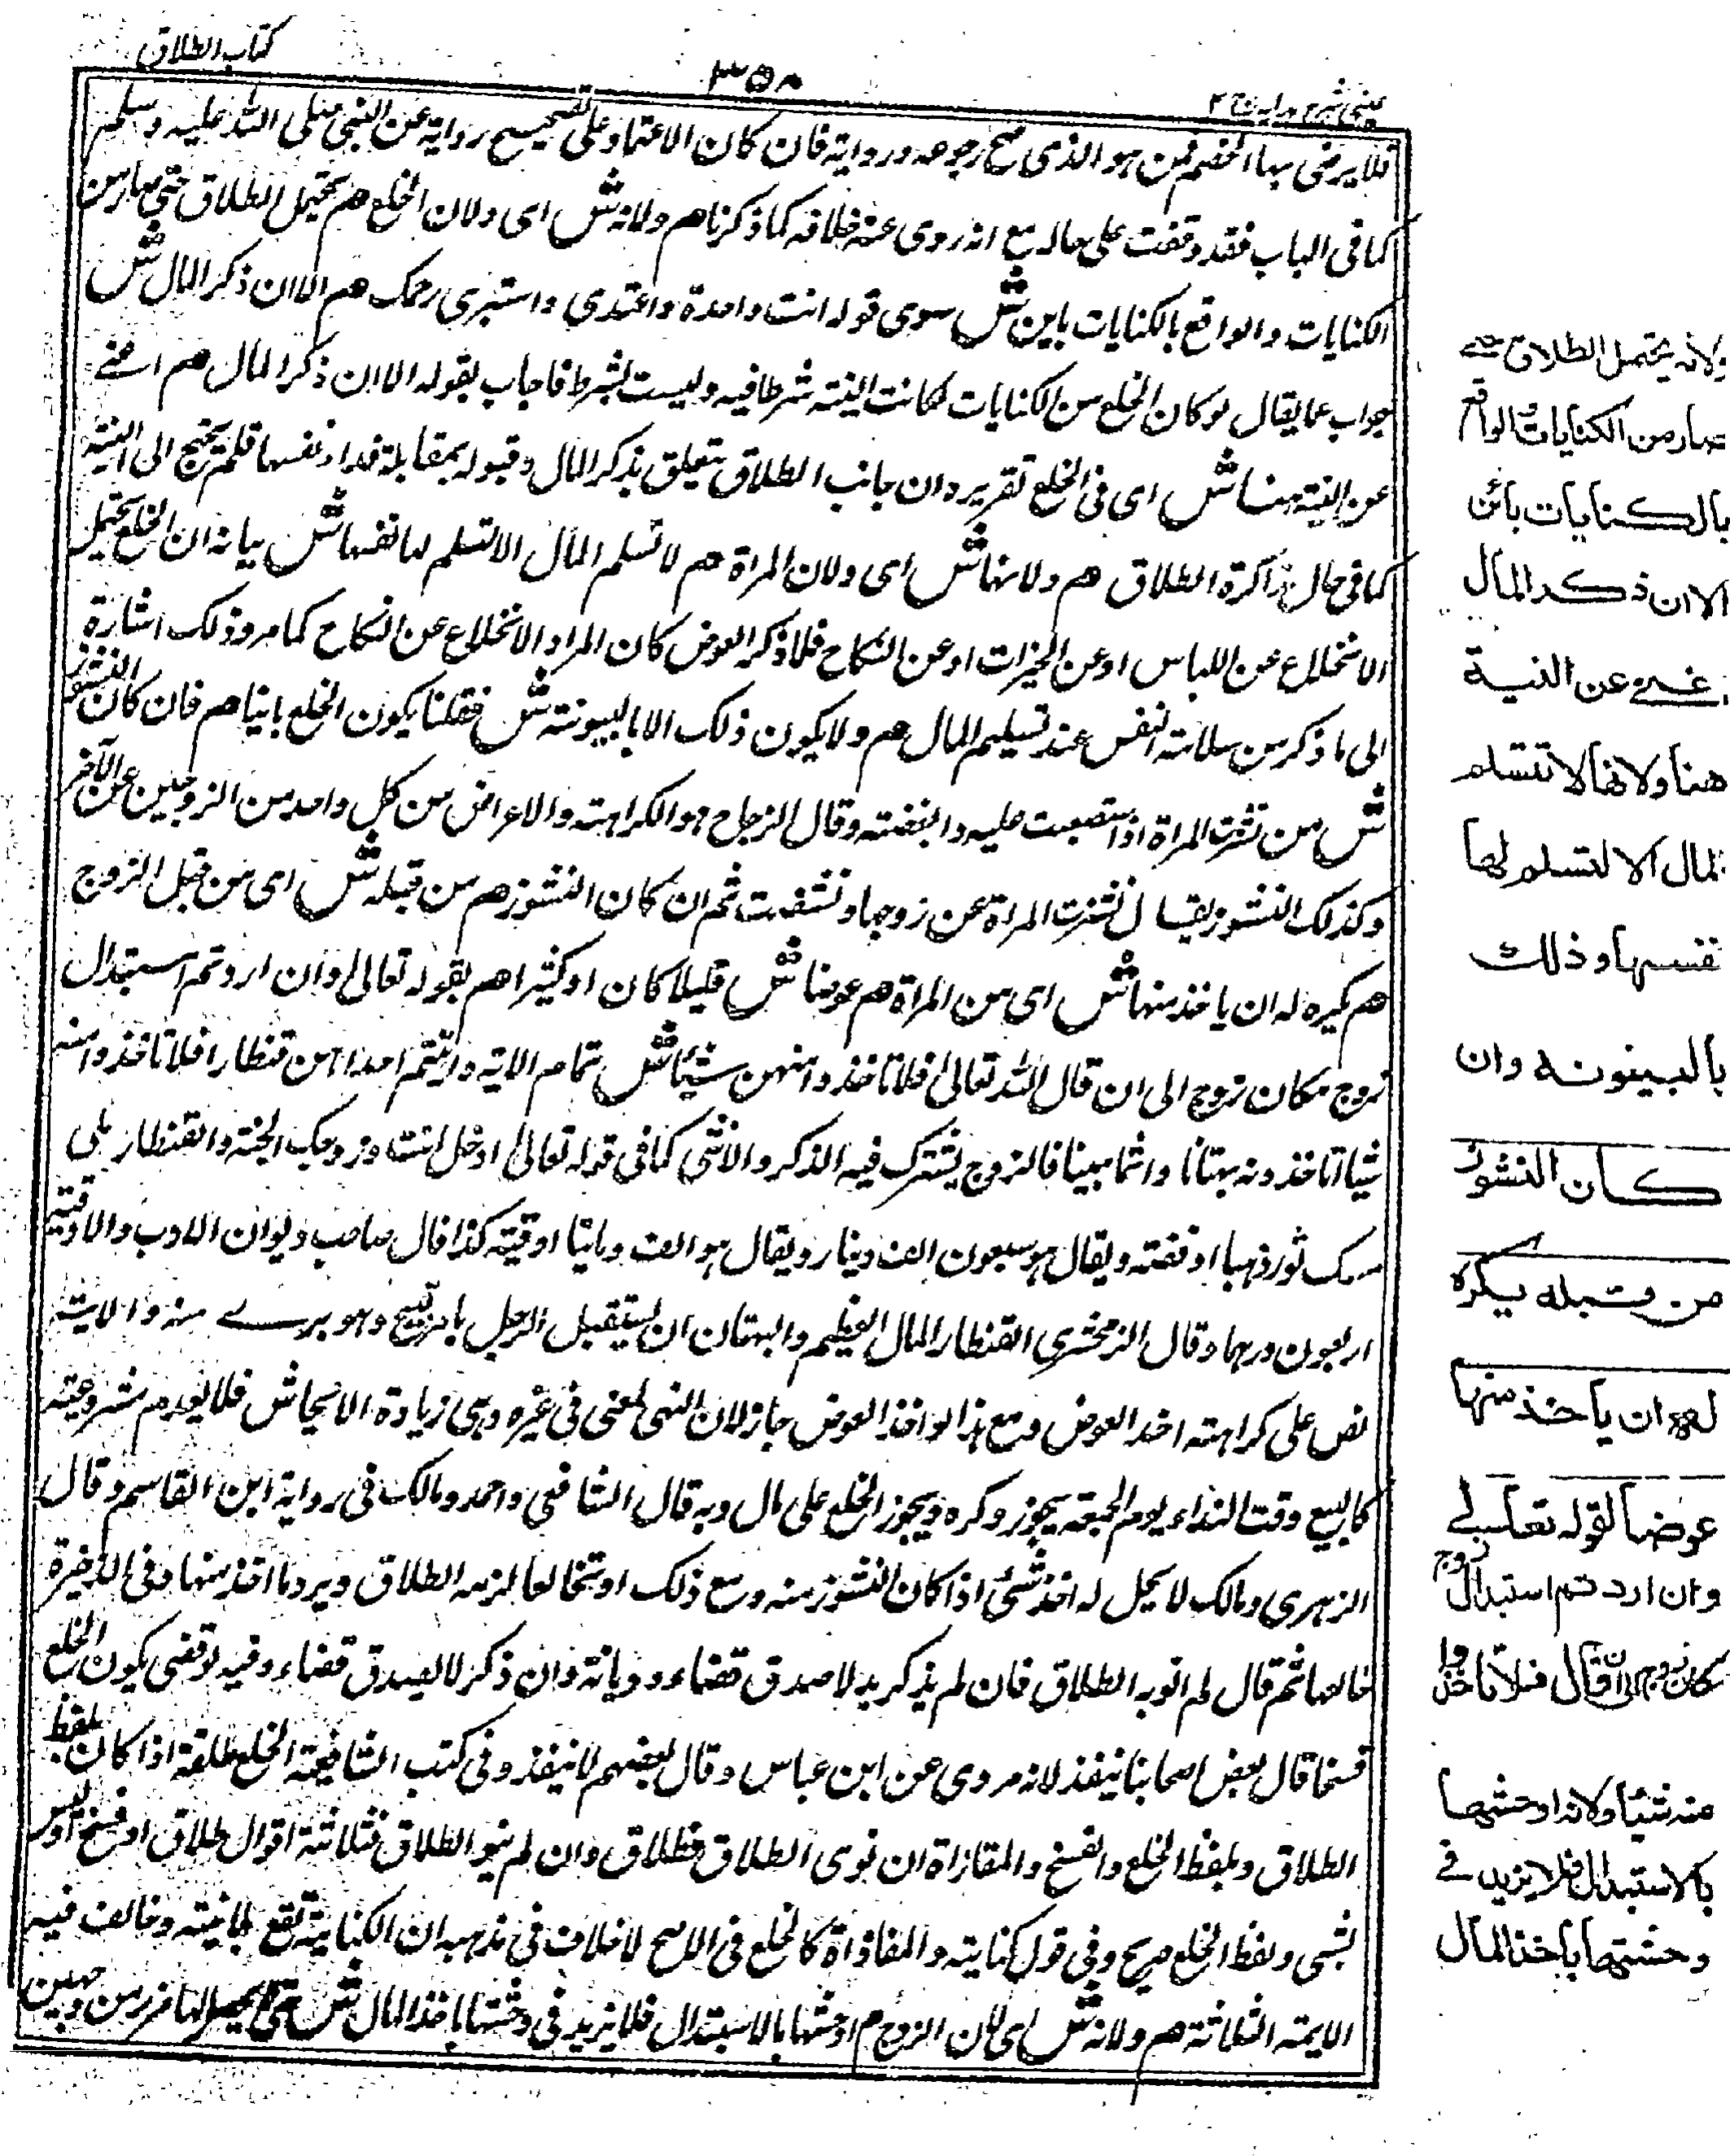 كتاب الطلاق
٣٥٨
عينى شرح هدايه ج ٢
فلا يرضى بها الخصم فمن هو الذى صح رجوعه وروايته فان كان الاعتماد على تصحيح رواية عن النبى صلى الله عليه وسلم
كما فى الباب فقد وقفت على حاله مع انه روى عنه خلافه كما ذكرنا هم ولانه ش اى ولان الخلع هم يحتمل الطلاق حتى صار من
الكنايات والواقع بالكنايات باين ش سوى قوله انت واحدة واعتدى واستبرى رحمك هم الا ان ذكر المال ش
جواب عما يقال لو كان الخلع من الكنايات لكانت النية شرطا فيه وليست بشرط فاجاب بقوله الا ان ذكر المال هم اغنے
عن النية هنا ش اى فى الخلع تقريره ان جانب الطلاق يتعلق بذكر المال وقبوله بمقابلة فداء نفسها فلم يحتج الى النية
كما فى حال مذاكرة الطلاق هم ولانها ش اى ولان المراة هم لا تسلم المال الا لتسلم لها نفسها ش بيانه ان الخلع يحتمل
الانخلاع عن اللباس او عن الخيرات او عن النكاح فلما ذكر العوض كان المراد الانخلاع عن النكاح كما مر وذلك اشارة
الى ما ذكر من سلامة النفس عند تسليم المال هم ولا يكون ذلك الا بالبينونة ش فقلنا يكون الخلع باينا هم فان كان النشوز
ش من نشزت المراة اذا استصعبت عليه وابغضته وقال الزجاج هو الكراهته والاعراض من كل واحد من الزوجين عن الآخر
وكذلك النشوز يقال نشزت المراة عن زوجها ونشصت ثم ان كان النشوز هم من قبله ش اى من قبل الزوج
هم يكره له ان ياخذ منها ش اى من المراة هم عوضا ش قليلا كان او كثيرا هم لقوله تعالى وان اردتم استبدال
زوج مكان زوج الى ان قال الله تعالى فلا تاخذوا منهن شيئا ش تمام الاية واتيتم احداهن قنطارا فلا تاخذوا منه
شيئا اتاخذونه بهتانا واثما مبينا فالزوج يشترك فيه الذكر والانثى كما فى قوله تعالى ادخل انت وزوجك الجنة والقنطار ملى
مسك ثور ذهبا او فضة ويقال هو سبعون الف دينار ويقال هو الف ومايتا اوقية كذا قال صاحب ديوان الادب والاوقية
اربعون درهما وقال الزمخشرى القنطار المال العظيم والبهتان ان يستقبل الرجل بامر قبيح وهو برے منه والاية
نص على كراهته اخذ العوض ومع هذا لو اخذ العوض جاز لان النهى لمعنى فى غيره وهى زيادة الايحاش فلا يعدم مشروعيته
كالبيع وقت النداء يوم الجمعة يجوز وكره ويجوز الخلع على مال وبه قال الشافعى واحمد ومالك فى رواية ابن القاسم وقال
الزهرى ومالك لا يحل له اخذ شئ اذا كان النشوز منه ومع ذلك لو تخالعا لزمه الطلاق ويرد ما اخذ منها وفى الذخيرة
خالعها ثم قال لم انو به الطلاق فان لم يذكر بدلا صدق قضاء وديانة وان ذكر لا يصدق قضاء وفيه لو قضى بكون الخلع
فسخا قال بعض اصحابنا ينفذ لانه مروى عن ابن عباس وقال بعضهم لا ينفذ وفى كتب الشافعية الخلع طلقة اذا كان بلفظ
الطلاق وبلفظ الخلع والفسخ والمفاداة ان نوى الطلاق فطلاق وان لم ينو الطلاق فثلاثة اقوال طلاق او فسخ او ليس
بشى ولفظ الخلع صريح وفى قول كناية والمفاداة كالخلع فى الاصح لا خلاف فى مذهبه ان الكناية تقع بالنية وخالف فيه
الايمة الثلاثة هم ولانه ش اى لان الزوج م اوحشها بالاستبدال فلا يزيد فى وحشتها باخذ المال ش حتى لا يحصل لها ضرر من وجهين
ولانه يحتمل الطلاق حتے
صار من الكنايات والواقع
بالكنايات بائن
الا ان ذكر المال
اغنے عن النية
هنا ولانها لا تتسلم
المال الا لتسلم لها
نفسها وذلك
بالبينونة وان
كان النشوز
من قبله يكره
له ان ياخذ منها
عوضا لقوله تعالے
وان اردتم استبدال زوج
مكان زوج الى ان قال فلا تاخذوا
منه شيئا ولانه اوحشها
بالاستبدال فلا يزيد فے
وحشتها باخذ المال